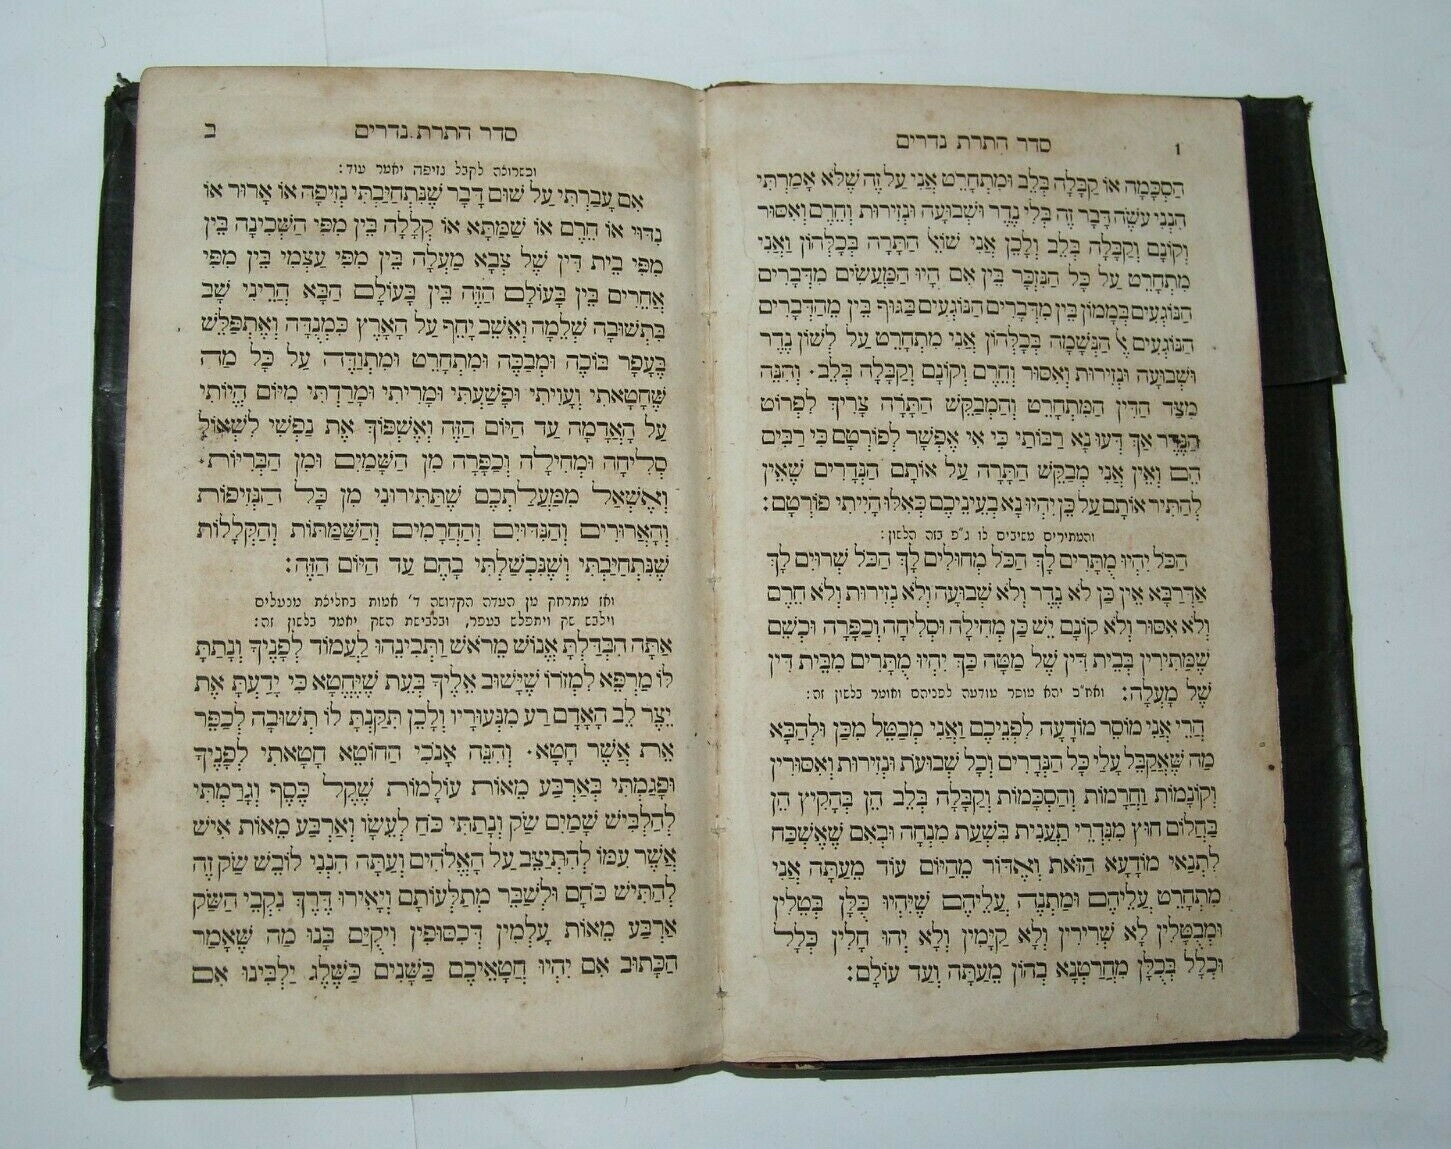 1
סדר התרת נדרים
הַסְכָּמָה אוֹ קַבָּלָה בְּלֵב וּמִתְחָרֵט אֲנִי עַל זֶה שֶׁלֹּא אָמַרְתִּי
הִנְנִי עֹשֶׂה דָּבָר זֶה בְּלִי נֶדֶר וּשְׁבוּעָה וּנְזִירוּת וְחֵרֶם וְאִסּוּר
וְקוֹנָם וְקַבָּלָה בְּלֵב וְלָכֵן אֲנִי שׁוֹאֵל הַתָּרָה בְּכָלְּהוֹן וַאֲנִי
מִתְחָרֵט עַל כָּל הַנִּזְכָּר בֵּין אִם הָיוּ הַמַּעֲשִׂים מִדְּבָרִים
הַנּוֹגְעִים בְּמָמוֹן בֵּין מִדְּבָרִים הַנּוֹגְעִים בַּגּוּף בֵּין מֵהַדְּבָרִים
הַנּוֹגְעִים אֶל הַנְּשָׁמָה בְּכָלְּהוֹן אֲנִי מִתְחָרֵט עַל לְשׁוֹן נֶדֶר
וּשְׁבוּעָה וּנְזִירוּת וְאִסּוּר וְחֵרֶם וְקוֹנָם וְקַבָּלָה בְּלֵב. וְהִנֵּה
מִצַּד הַדִּין הַמִּתְחָרֵט וְהַמְבַקֵּשׁ הַתָּרָה צָרִיךְ לִפְרוֹט
הַנֶּדֶר אַךְ דְּעוּ נָא רַבּוֹתַי כִּי אִי אֶפְשָׁר לְפוֹרְטָם כִּי רַבִּים
הֵם וְאֵין אֲנִי מְבַקֵּשׁ הַתָּרָה עַל אוֹתָם הַנְּדָרִים שֶׁאֵין
לְהַתִּיר אוֹתָם עַל כֵּן יִהְיוּ נָא בְעֵינֵיכֶם כְּאִלּוּ הָיִיתִי פוֹרְטָם:
והמתירים משיבים לו ג"פ בזה הלשון:
הַכֹּל יִהְיוּ מֻתָּרִים לָךְ הַכֹּל מְחוּלִים לָךְ הַכֹּל שְׁרוּיִם לָךְ
אַדְּרַבָּא אֵין כַּן לֹא נֶדֶר וְלֹא שְׁבוּעָה וְלֹא נְזִירוּת וְלֹא חֵרֶם
וְלֹא אִסּוּר וְלֹא קוֹנָם יֵשׁ כַּן מְחִילָה וּסְלִיחָה וְכַפָּרָה וּכְשֵׁם
שֶׁמַּתִּירִין בְּבֵית דִּין שֶׁל מַטָּה כַּךְ יִהְיוּ מֻתָּרִים מִבֵּית דִּין
שֶׁל מַעְלָה: ואח"כ יהא מוסר מודעה לפניהם ואומר בלשון זה:
הֲרֵי אֲנִי מוֹסֵר מוֹדָעָה לִפְנֵיכֶם וַאֲנִי מְבַטֵּל מִכַּן וּלְהַבָּא
מַה שֶּׁאֲקַבֵּל עָלַי כָּל הַנְּדָרִים וְכָל שְׁבוּעוֹת וּנְזִירוּת וְאִסּוּרִין
וְקוֹנָמוֹת וַחֲרָמוֹת וְהַסְכָּמוֹת וְקַבָּלָה בְּלֵב הֵן בְּהָקִיץ הֵן
בַּחֲלוֹם חוּץ מִנִּדְרֵי תַעֲנִית בִּשְׁעַת מִנְחָה וּבְאִם שֶׁאֶשְׁכַּח
לִתְנַאי מוֹדָעָא הַזֹּאת וְאֶדּוֹר מֵהַיּוֹם עוֹד מֵעַתָּה אֲנִי
מִתְחָרֵט עֲלֵיהֶם וּמַתְנֶה עֲלֵיהֶם שֶׁיִּהְיוּ כֻּלָּן בְּטֵלִין
וּמְבֻטָּלִין לֹא שְׁרִירִין וְלֹא קַיָּמִין וְלֹא יְהוּ חָלִין כְּלָל
וּכְלָל בְּכֻלָּן מִחֲרַטְנָא בְהוֹן מֵעַתָּה וְעַד עוֹלָם:
סדר התרת נדרים
ב
וכשרוצה לקבל נזיפה יאמר עוד:
אִם עָבַרְתִּי עַל שׁוּם דָּבָר שֶׁנִּתְחַיַּבְתִּי נְזִיפָה אוֹ אָרוּר אוֹ
נִדּוּי אוֹ חֵרֶם אוֹ שַׁמַּתָּא אוֹ קְלָלָה בֵּין מִפִּי הַשְּׁכִינָה בֵּין
מִפִּי בֵית דִּין שֶׁל צְבָא מַעְלָה בֵּין מִפִּי עַצְמִי בֵּין מִפִּי
אֲחֵרִים בֵּין בָּעוֹלָם הַזֶּה בֵּין בָּעוֹלָם הַבָּא הֲרֵינִי שָׁב
בִּתְשׁוּבָה שְׁלֵמָה וְאֵשֵׁב יָחֵף עַל הָאָרֶץ כִּמְנֻדָּה וְאֶתְפַּלֵּשׁ
בֶּעָפָר בּוֹכֶה וּמְבַכֶּה וּמִתְחָרֵט וּמִתְוַדֶּה עַל כָּל מַה
שֶּׁחָטָאתִי וְעָוִיתִי וּפָשַׁעְתִּי וּמָרִיתִי וּמָרַדְתִּי מִיּוֹם הֱיוֹתִי
עַל הָאֲדָמָה עַד הַיּוֹם הַזֶּה וְאֶשְׁפּוֹךְ אֶת נַפְשִׁי לִשְׁאוֹל
סְלִיחָה וּמְחִילָה וְכַפָּרָה מִן הַשָּׁמַיִם וּמִן הַבְּרִיּוֹת.
וְאֶשְׁאַל מִמַּעֲלַתְכֶם שֶׁתַּתִּירוּנִי מִן כָּל הַנְּזִיפוֹת
וְהָאֲרוּרִים וְהַנִּדּוּיִם וְהַחֲרָמִים וְהַשַּׁמְתּוֹת וְהַקְּלָלוֹת
שֶׁנִּתְחַיַּבְתִּי וְשֶׁנִּכְשַׁלְתִּי בָהֶם עַד הַיּוֹם הַזֶּה:
ואז מתרחק מן העדה הקדושה ד' אמות בחליצת מנעלים
וילבש שק ויתפלש בעפר, ובלבישת השק יאמר בלשון זה:
אַתָּה הִבְדַּלְתָּ אֱנוֹשׁ מֵרֹאשׁ וַתְּבִינֵהוּ לַעֲמוֹד לְפָנֶיךָ וְנָתַתָּ
לוֹ מַרְפֵּא לִמְזוֹרוֹ שֶׁיָּשׁוּב אֵלֶיךָ בְּעֵת שֶׁיֶּחֱטָא כִּי יָדַעְתָּ אֶת
יֵצֶר לֵב הָאָדָם רַע מִנְּעוּרָיו וְלָכֵן תִּקַּנְתָּ לוֹ תְּשׁוּבָה לְכַפֵּר
אֵת אֲשֶׁר חָטָא. וְהִנֵּה אָנֹכִי הַחוֹטֵא חָטָאתִי לְפָנֶיךָ
וּפָגַמְתִּי בְּאַרְבַּע מֵאוֹת עוֹלָמוֹת שֶׁקֶל כֶּסֶף וְגָרַמְתִּי
לְהַלְבִּישׁ שָׁמַיִם שַׂק וְנָתַתִּי כֹּחַ לְעֵשָׂו וְאַרְבַּע מֵאוֹת אִישׁ
אֲשֶׁר עִמּוֹ לְהִתְיַצֵּב עַל הָאֱלֹהִים וְעַתָּה הִנְנִי לוֹבֵשׁ שַׂק זֶה
לְהַתִּישׁ כֹּחָם וּלְשַׁבֵּר מְתַלְּעוֹתָם וְיָאִירוּ דֶּרֶךְ נִקְבֵי הַשַּׂק
אַרְבַּע מֵאוֹת עָלְמִין דְּכִסּוּפִין וִיקֻיַּם בָּנוּ מַה שֶּׁאָמַר
הַכָּתוּב אִם יִהְיוּ חֲטָאֵיכֶם כַּשָּׁנִים כַּשֶּׁלֶג יַלְבִּינוּ אִם